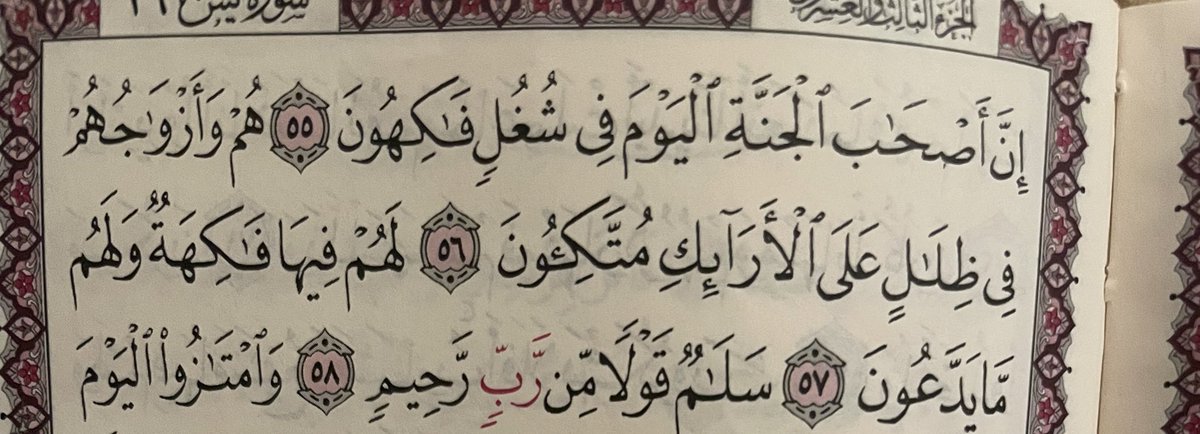 سورة يس ٣٦ الجزء الثالث والعشرون
إِنَّ أَصْحَٰبَ ٱلْجَنَّةِ ٱلْيَوْمَ فِى شُغُلٍ فَٰكِهُونَ ٥٥ هُمْ وَأَزْوَٰجُهُمْ
فِى ظِلَٰلٍ عَلَى ٱلْأَرَآئِكِ مُتَّكِـُٔونَ ٥٦ لَهُمْ فِيهَا فَٰكِهَةٌ وَلَهُم
مَّا يَدَّعُونَ ٥٧ سَلَٰمٌ قَوْلًا مِّن رَّبٍّ رَّحِيمٍ ٥٨ وَٱمْتَٰزُوا۟ ٱلْيَوْمَ